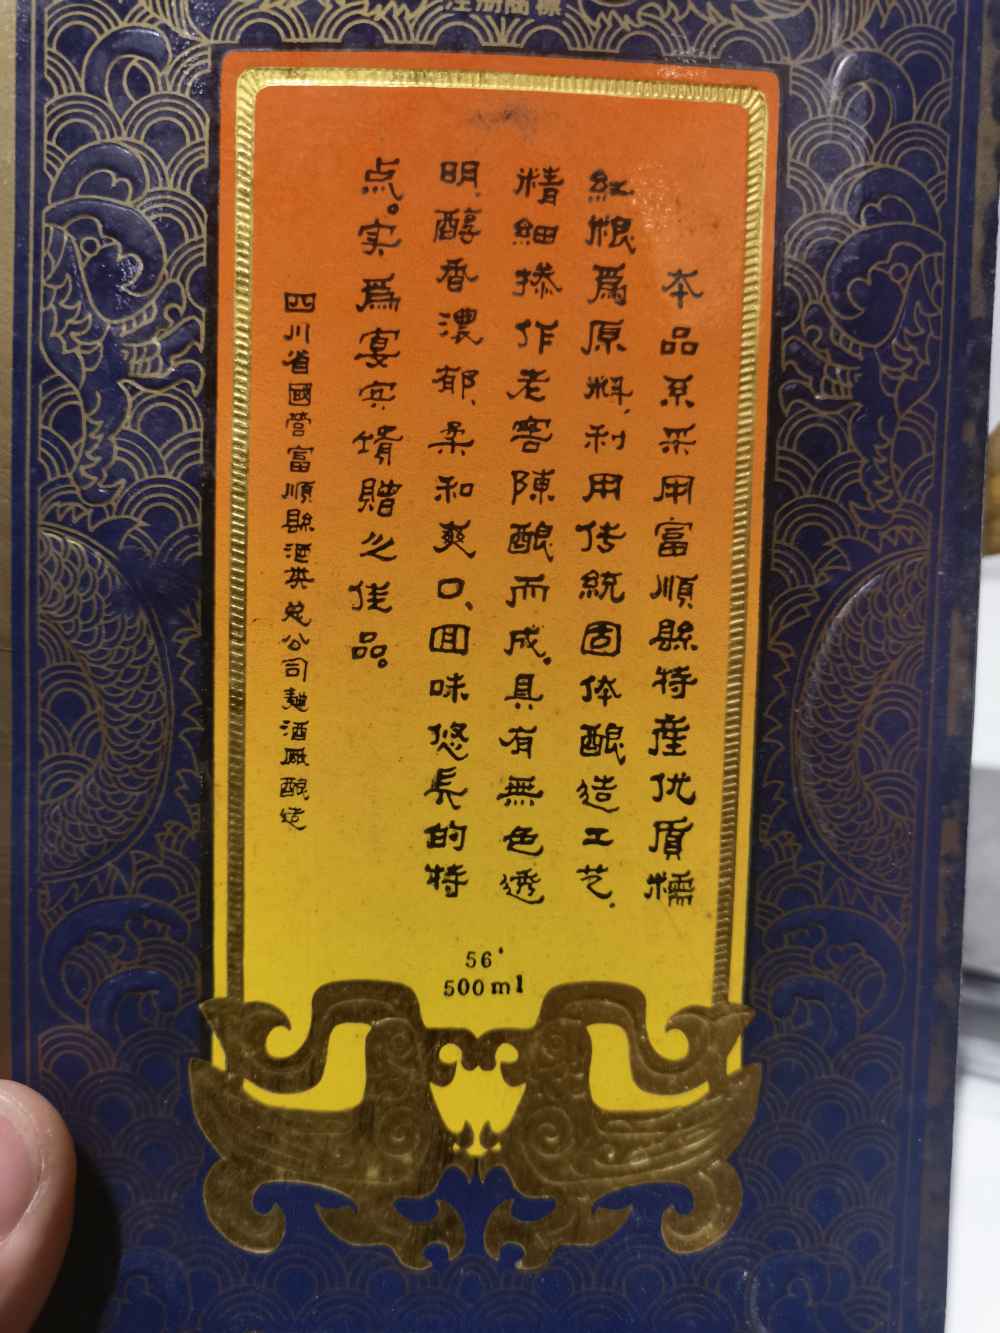 注册商標
本品系采用富順縣特產优质糯
紅粮爲原料、利用传統固体酿造工艺.
精细操作老窖陳酿而成.具有無色透
明、醇香濃郁、柔和爽口、回味悠長的特
点。实爲宴宾馈贈之佳品。
四川省國营富順縣酒类总公司麯酒厰酿造
56°
500ml